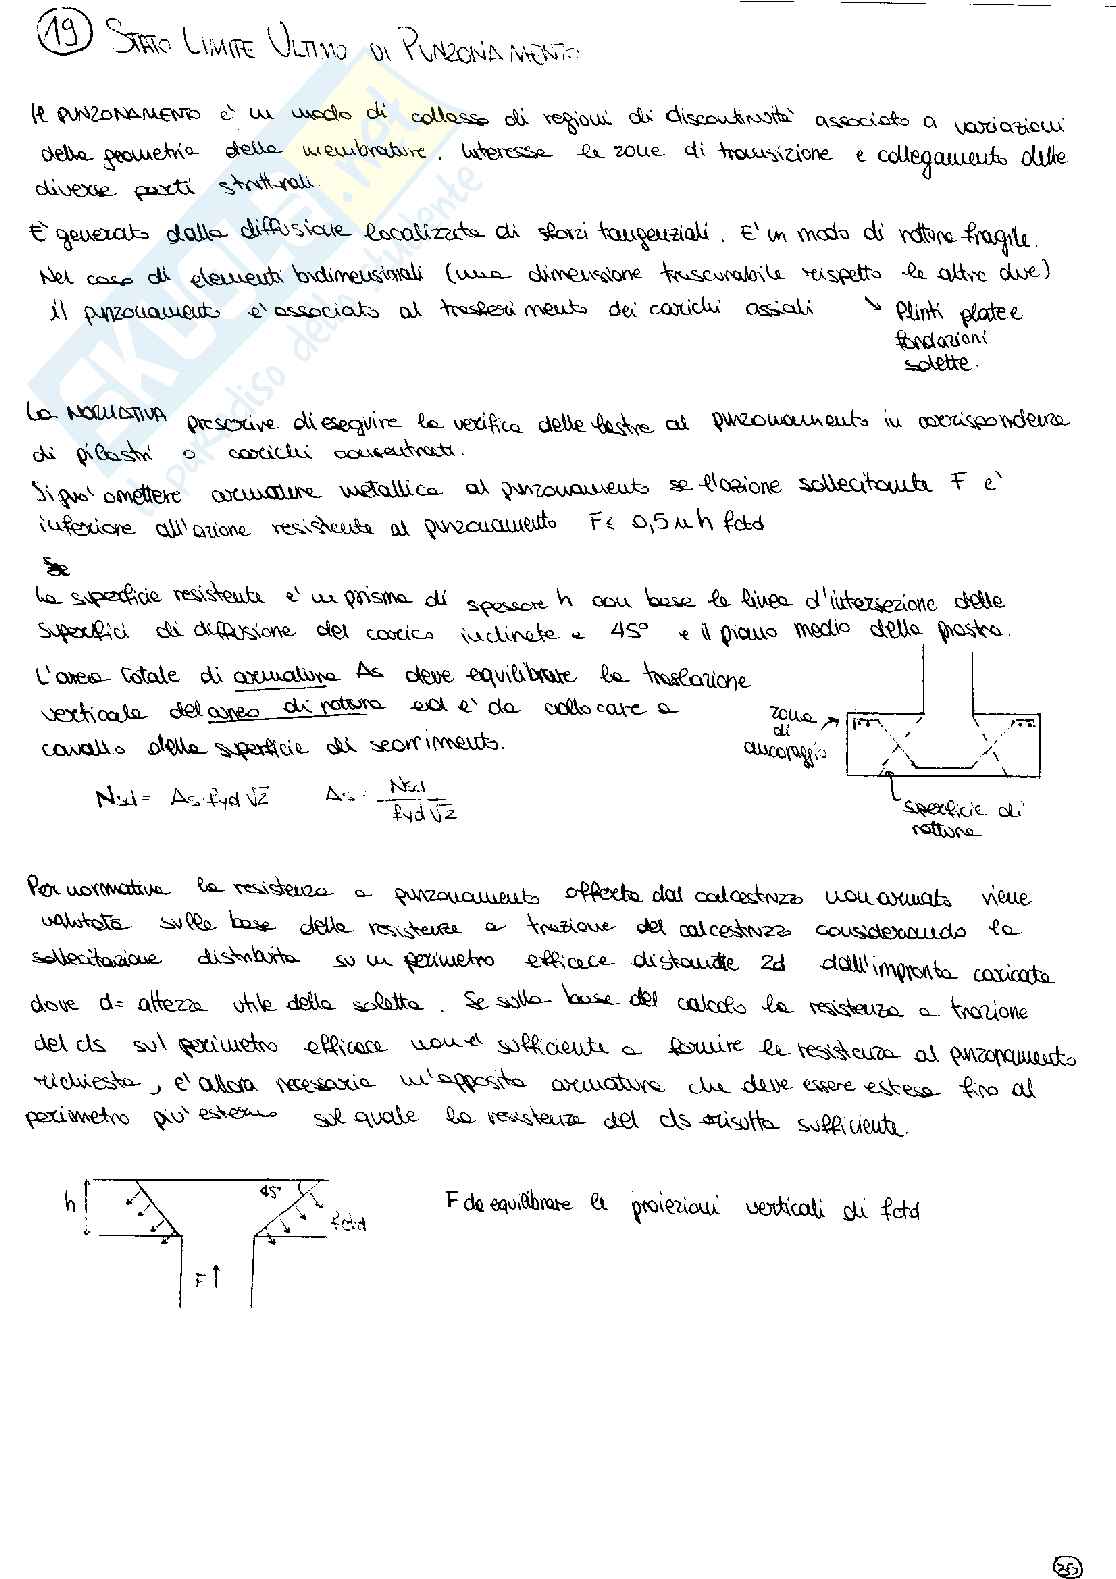 19 STATO LIMITE ULTIMO DI PUNZONAMENTO
Il PUNZONAMENTO è un modo di collasso di regioni di discontinuità associato a variazioni
della geometria delle membrature. Interessa le zone di transizione e collegamento delle
diverse parti strutturali.
E' generato dalla diffusione localizzata di sforzi tangenziali. E' un modo di rottura fragile.
Nel caso di elementi bidimensionali (una dimensione trascurabile rispetto le altre due)
il punzonamento è associato al trasferimento dei carichi assiali
↘ Plinti platee
fondazioni
solette.
La NORMATIVA prescrive di eseguire la verifica delle lastre al punzonamento in corrispondenza
di pilastri o carichi concentrati.
Si può omettere armature metallica al punzonamento se l'azione sollecitante F è
inferiore all'azione resistente al punzonamento F≤ 0,5 u h fctd
La superficie resistente è un prisma di spessore h con base la linea d'intersezione delle
superfici di diffusione del carico inclinate a 45° e il piano medio della piastra.
L'area totale di armatura As deve equilibrare la traslazione
verticale del area di rottura ed è da collocare a
cavallo della superficie di scorrimento.
zona di ancoraggio
superficie di rottura
Nsd = As·fyd √2 As = Nsd / fyd √2
Per normativa la resistenza a punzonamento offerta dal calcestruzzo non armato viene
valutata sulla base della resistenza a trazione del calcestruzzo considerando la
sollecitazione distribuita su un perimetro efficace distante 2d dall'impronta caricata
dove d= altezza utile della soletta. Se sulla base del calcolo la resistenza a trazione
del cls sul perimetro efficace non è sufficiente a fornire la resistenza al punzonamento
richiesta, è allora necessaria un'apposita armatura che deve essere estesa fino al
perimetro più esterno sul quale la resistenza del cls risulta sufficiente.
h 45° fctd
F↑
F da equilibrare le proiezioni verticali di fctd
25
SKUOLA.net
il paradiso dello studente